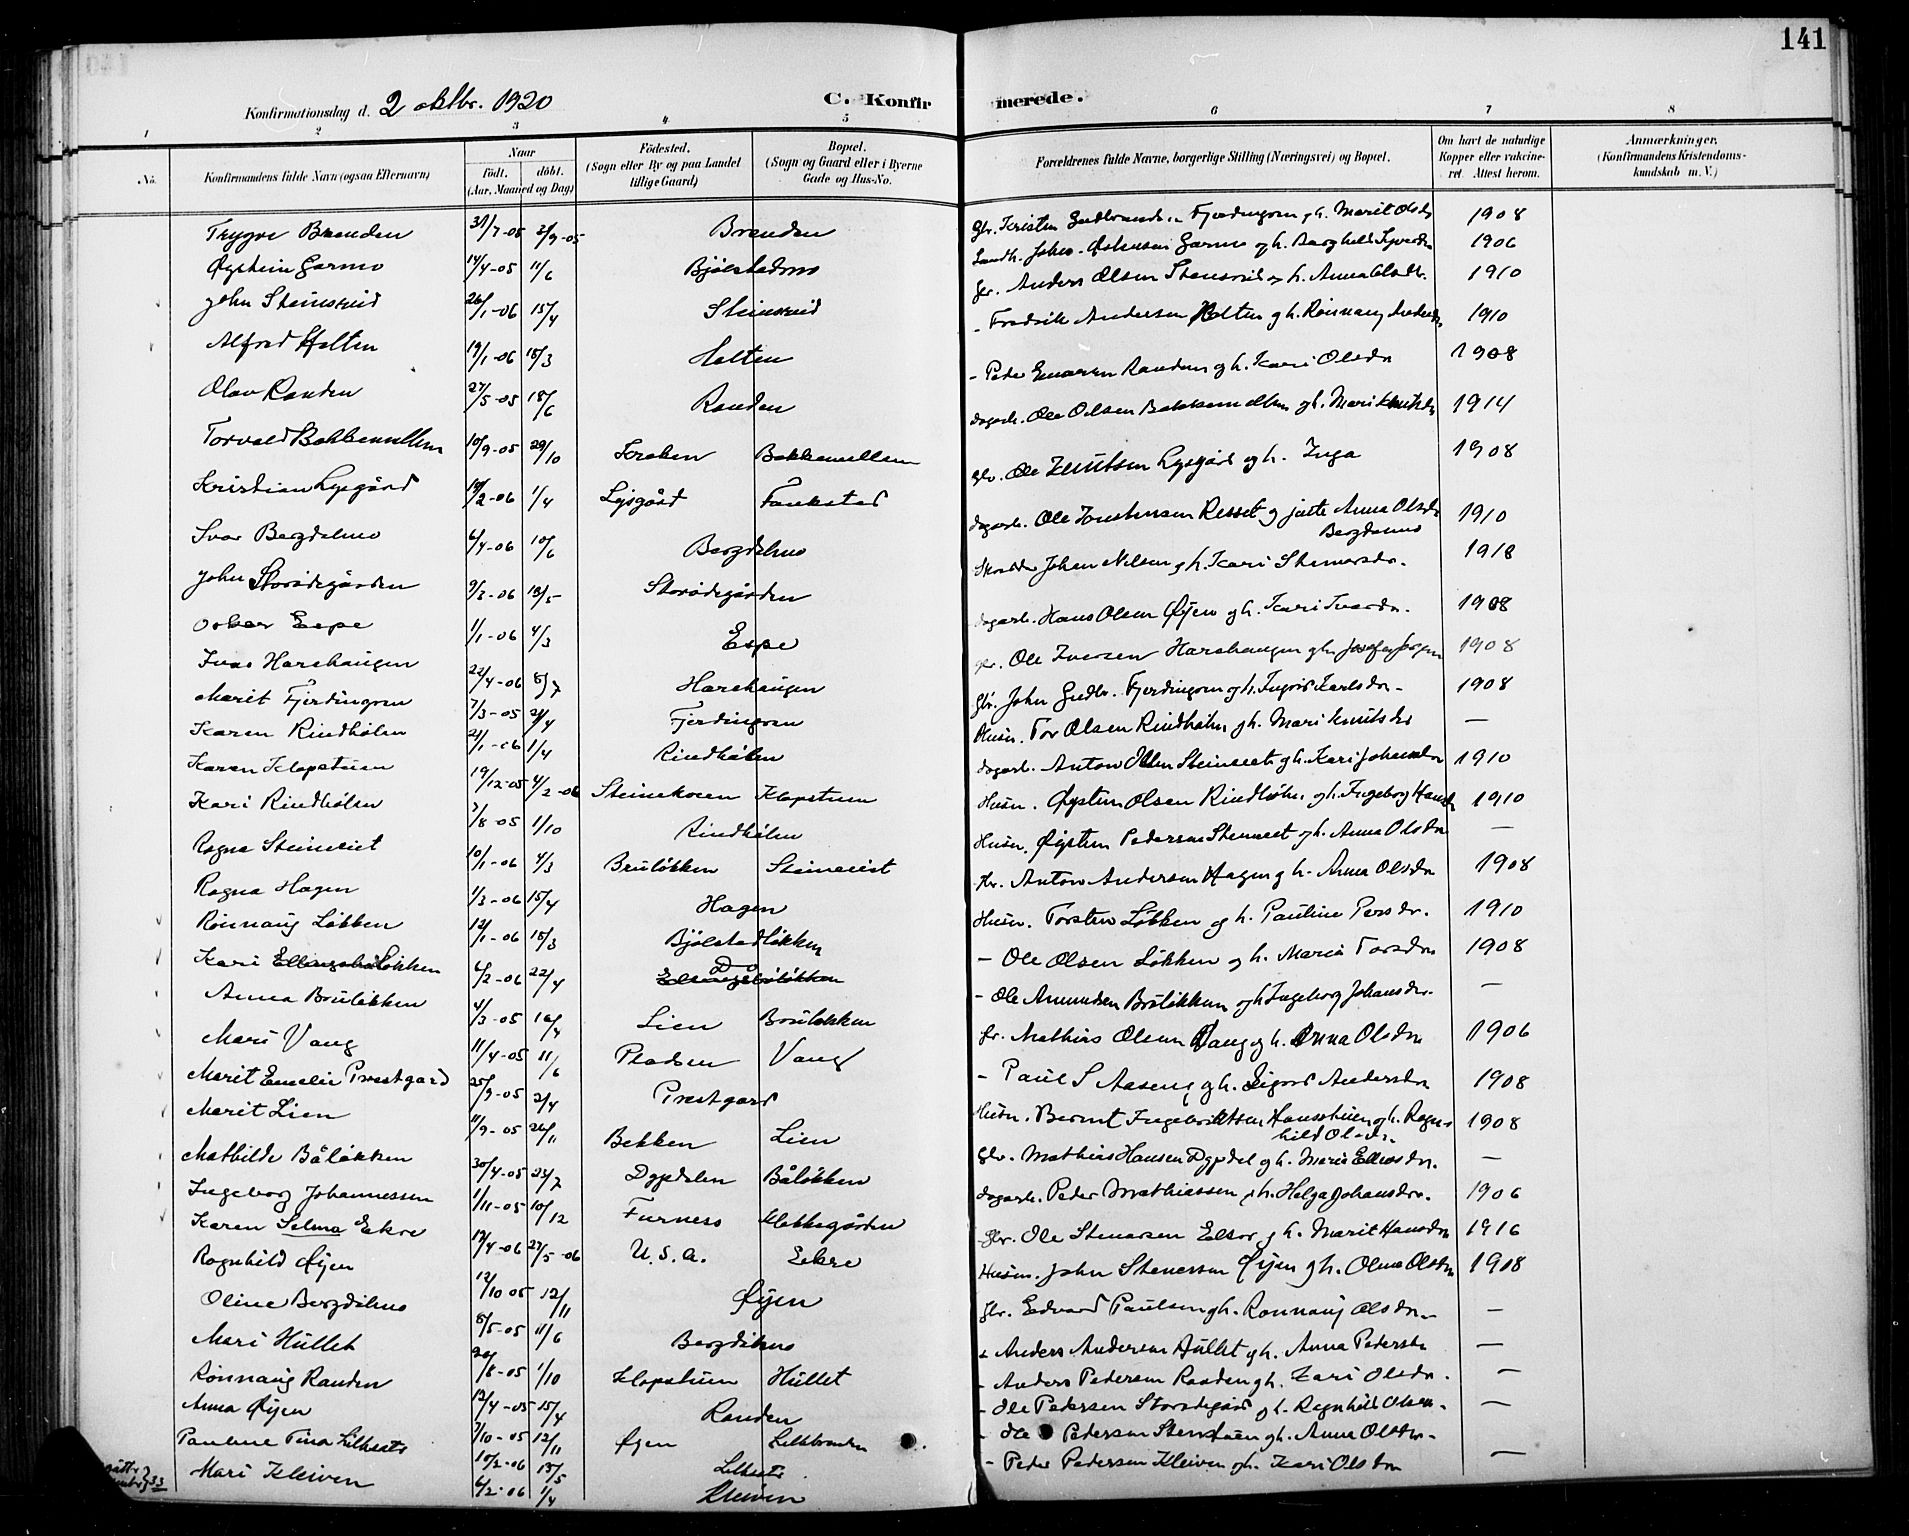 141
Konfirmationsdag d. 2 oktbr. 1920
C. Konfir merede.
1 2 3 4 5 6 7 8
No. Konfirmandens fulde Navn (ogsaa Efternavn) Naar födt. döbt. (Aar, Maaned og Dag) Födested. (Sogn eller By og paa Landet tillige Gaard) Bopæl. (Sogn og Gaard eller i Byerne Gade og Hus-No. Forældrenes fulde Navne, borgerlige Stilling (Næringsvei) og Bopæl. Om havt de naturlige Kopper eller vakcineret. Attest herom. Anmærkninger. (Konfirmandens Kristendomskundskab m. V.)
Trygve Brenden 31/7-05 2/9-05 Brenden Gbr. Kristen Gudbrands. Fjerdingren g h. Marit Olsdr 1908
Øystein Garmo 14/4-05 11/6 Bjølstadmo Landh. Johs. Østensen Garmo og h. Borghild Syverdtr 1906
John Steinsreid 26/1-06 15/4 Steinsreid Gr. Anders Olsen Stensreid og h. Anna Olsdtr. 1910
Alfred Holten 19/1-06 18/3 Holten - Fredrik Andersen Holten g h. Rønnaug Andersdr 1910
Olav Randen 27/5-05 18/6 Randen - Peder Randen g h. Kari Olsdr 1908
Torvald Bakkemellem 10/9-05 29/10 Kroken Bakkemellem dagarb. Ole Olsen Bakkemellem g h. Mari Knutsdr 1914
Kristian Lysgård 18/2-06 1/4 Lysgård Faukstad Gbr. Ole Knutsen Lysgård og h. Inga 1908
Ivar Bergdølmo 6/4-06 10/6 Bergdølmo dagarb. Ole Resset g jente Anna Olsdr Bergdølmo 1910
John Storødegården 9/2-06 13/5 Storødegården Johan Nilsen g h. Kari Stenersdr. 1918
Oskar Espe 1/1-06 4/3 Espe dagarb. Hans Olsen Øyen g h. Kari Iversdr. 1908
Ivar Harehaugen 22/4-06 8/7 Harehaugen Gbr. Ole Iversen Harehaugen g h. 1908
Marit Fjerdingren 7/3-05 24/4 Fjerdingren Gbr. John Gudbr. Fjerdingren og h. Ingrid Karlsdr - 1908
Karen Rindhølen 21/1-06 1/4 Rindhølen Husm. Tor Olsen Rindhølen g h. Mari Knutsdr —
Karen Klopstuen 19/12-05 4/2-06 Steinekoven Klopstuen dagarb. Anton Olsen g h. Kari Johansdr 1910
Kari Rindhølen 7/8-05 1/10 Rindhølen Husm. Øysten Olsen Rindhølen g h. Ingeborg Hansdr 1910
Ragna Steineiet 10/1-06 4/3 Bruløkken Steineiet Husm. Øysten Pedersen Steneiet og h. Anna Olsdr —
Ragna Hagen 1/3-06 15/4 Hagen Gbr. Anton Andersen Hagen g h. Anna Olsdr 1908
Rønnaug Løkken 12/1-06 18/3 Bjølstadløkken Husm. Torsten Løkken og h. Pauline Persdr. 1910
Kari Løkken 6/2-06 22/4 Do - Ole Olsen Løkken og h. Maria Torsdr 1908
Anna Bruløkken 4/3-05 16/4 Lien Bruløkken - Ole Amundsen Bruløkken og h Ingeborg Johansdr. —
Mari Vang 11/4-05 11/6 Pladsen Vang Gr. Mathias Olsen Vang og h. Anna Olsdr 1906
Marit Emelie Prestgard 25/9-05 2/4 Prestgard - Paul S Aaseng og h. Sigrid Andersdr 1908
Marit Lien 11/9-05 26/11 Bekken Lien Husm. Bernt Ingebriktsen Hansstuen g h. Ragnhild Olsdr. 1908
Mathilde Båløkken 30/4-05 23/7 Dypdalen Båløkken Gbr. Mathias Hansen Dypdal og h. Maria Eliasdr. —
Ingeborg Johannessen 1/11-05 10/12 Furnes Klokkegården dagarb. Peder Mathiassen g h. Helga Johansdr. 1906
Karen Selma Ekre 17/4-06 27/5-06 U.S.A. Ekre Gbr. Ole Stenersen g h. Marit Hansdr 1916
Ragnhild Øyen 12/10 05 12/11 Øyen Husm. John Stenersen Øyen g h. Olina Olsdr 1908
Oline Bergdølmo 8/5-05 11/6 Bergdølmo Gbr. Edvard Paulsen g h. Rønnaug Olsdr. —
Mari Hullet 20/8-05 1/10 Klopstuen Hullet - Anders Andersen Hullet g h. Anna Pedersdr —
Rønnaug Randen 12/4-05 15/4 Randen - Anders Pedersen Randen g h. Kari Olsdr. —
Anna Øyen 7/10-05 12/11 Øyen - Ole Pedersen Storødegård g h. Ragnhild Olsen. —
Pauline Tina Lillesæte 10/2-06 13/5 Lillesæte - Ole Pedersen g h. Anna Olsdr - —
Mari Kleiven 6/2-06 1/4 Kleiven - Peder Pedersen Kleiven g h. Kari Olsdr —
33